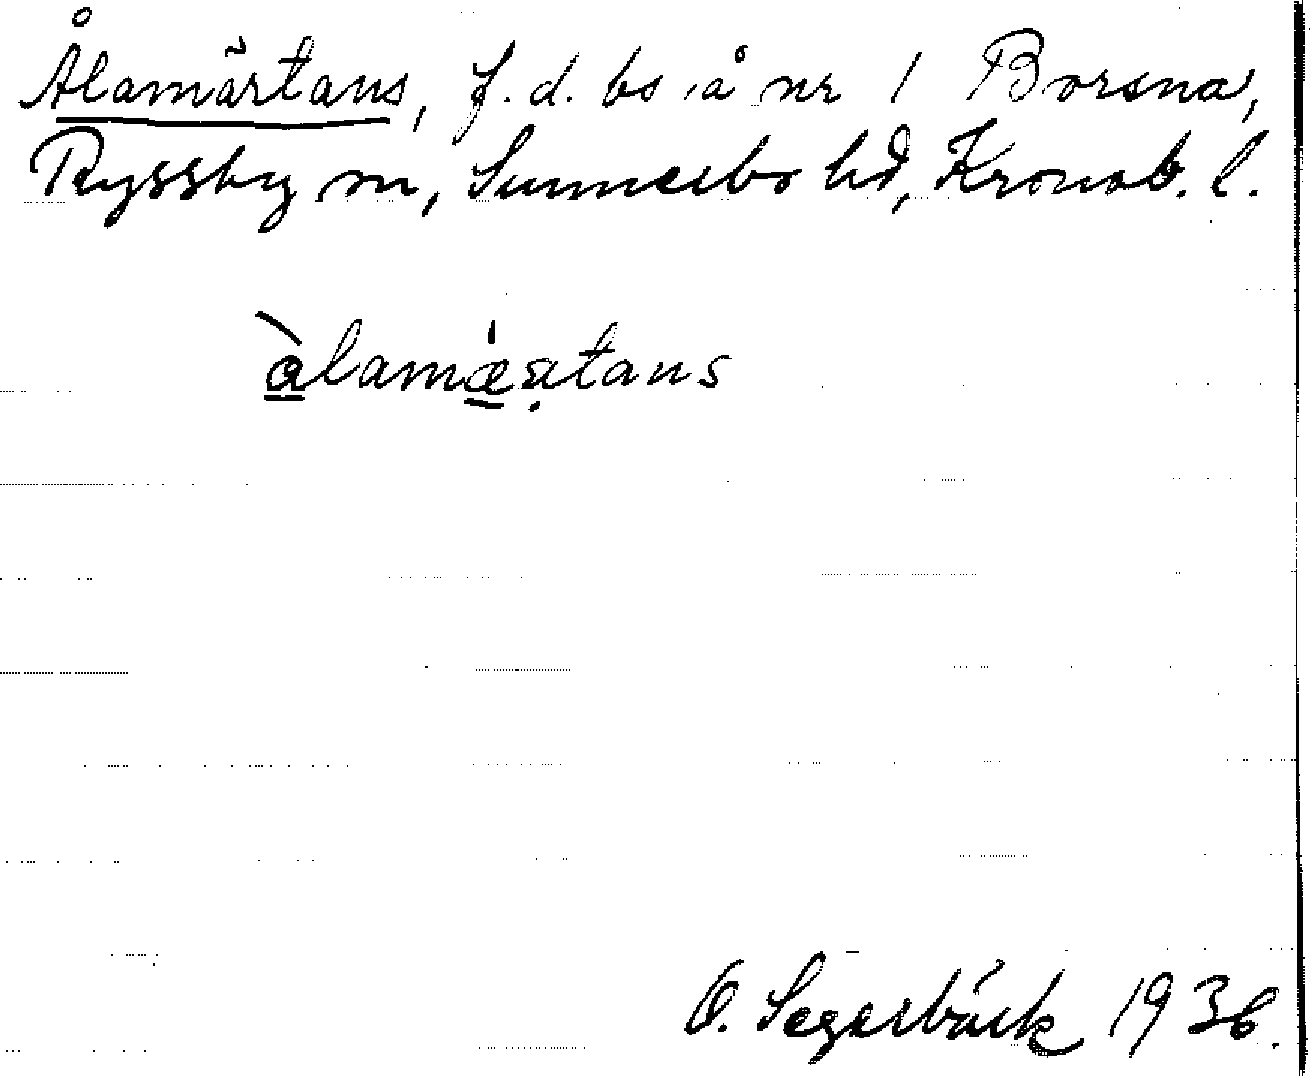 Ålamärtans, f.d. bs å nr 1 Borsna,
Ryssby sn, Sunnerbo hd, Kronob. l.
àlamæ̀ṛtans
O. Segerbäck 1936.